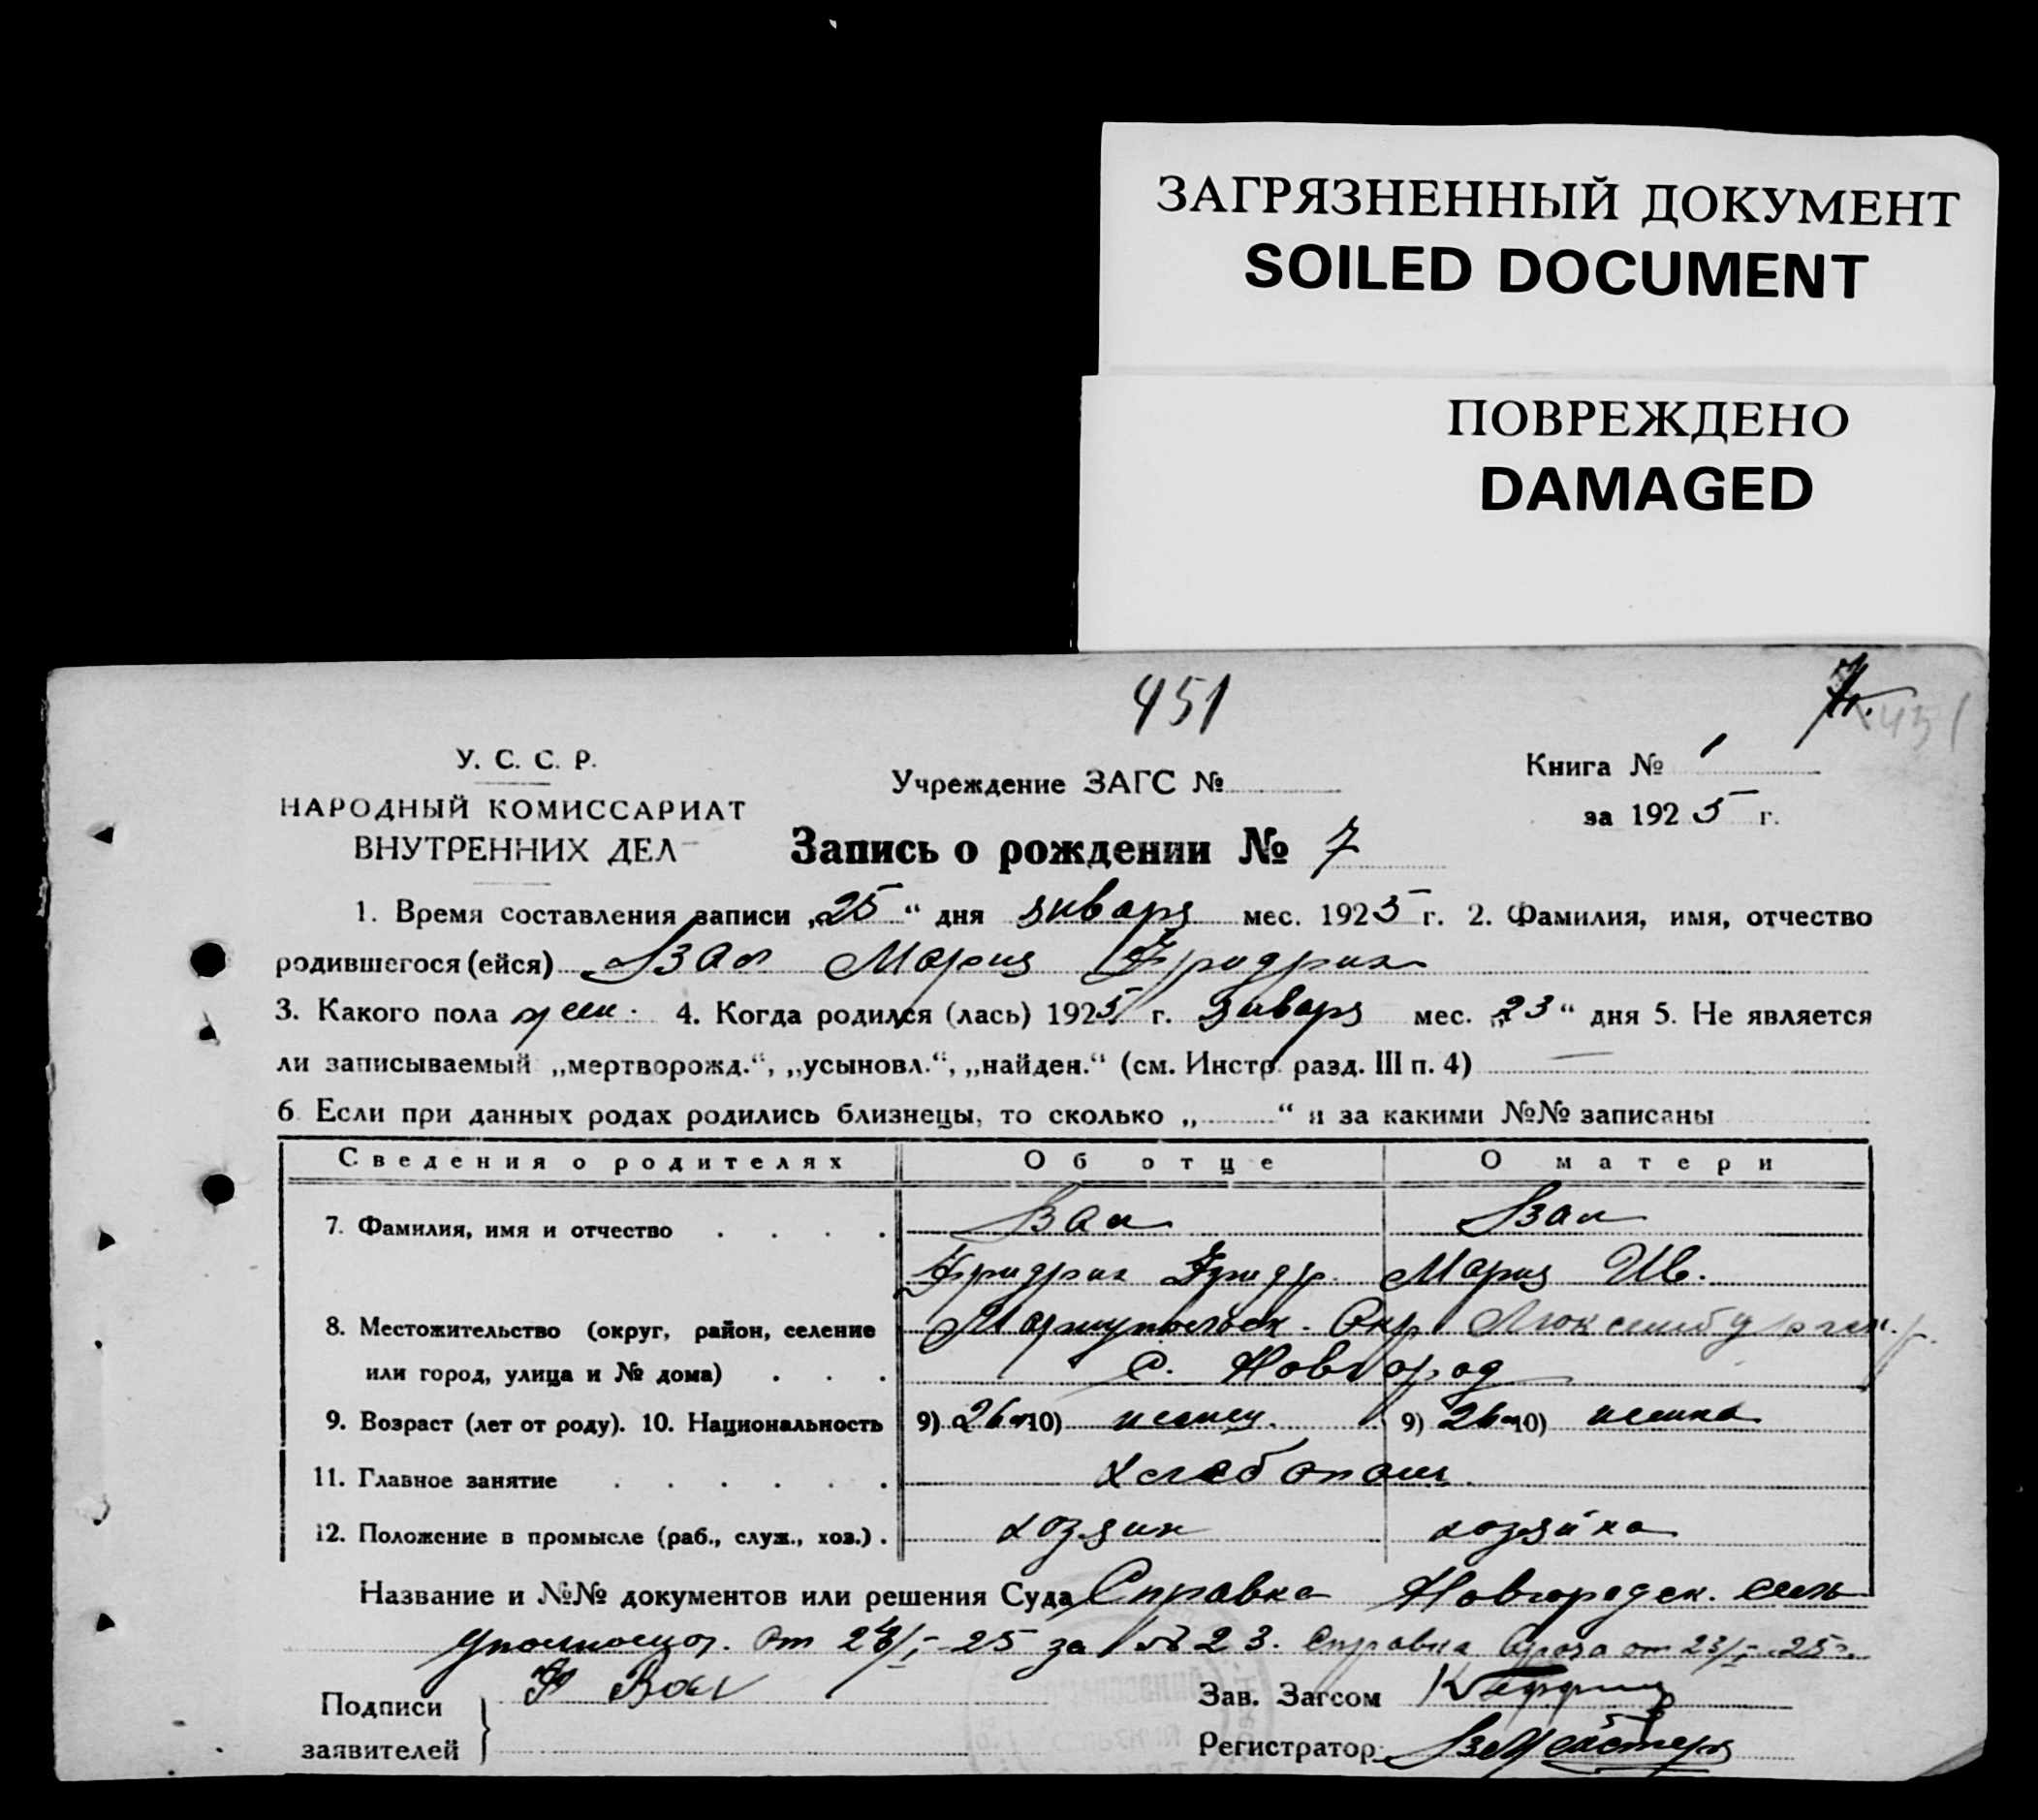 ЗАГРЯЗНЕННЫЙ ДОКУМЕНТ
SOILED DOCUMENT
ПОВРЕЖДЕНО
DAMAGED
451
451
У. С. С. Р.
НАРОДНЫЙ КОМИССАРИАТ
ВНУТРЕННИХ ДЕЛ
Учреждение ЗАГС №
Книга № 1
за 1925 г.
Запись о рождении № 7
1. Время составления записи „25“ дня января мес. 1925 г. 2. Фамилия, имя, отчество
родившегося (ейся) Вал Мария Фридрих
3. Какого пола жен. 4. Когда родился (лась) 1925 г. января мес. „23“ дня 5. Не является
ли записываемый „мертворожд.“, „усыновл.“, „найден.“ (см. Инстр. разд. III п. 4) —
6. Если при данных родах родились близнецы, то сколько „ “ и за какими №№ записаны
Сведения о родителях Об отце О матери
7. Фамилия, имя и отчество Вал Вал
Фридрих Фридр. Мария Ив.
8. Местожительство (округ, район, селение Мариупольск. Окр Люксембургск. р.
или город, улица и № дома) с. Новгород
9. Возраст (лет от роду). 10. Национальность 9) 26 10) немец. 9) 26 10) немка
11. Главное занятие хлебопаш.
12. Положение в промысле (раб., служ., хоз.) хозяин хозяйка
Название и №№ документов или решения Суда Справка Новгородск. сель
уполномоч. от 24/I-25 за № 23. Справка от 23/I-25г.
Подписи заявителей
Зав. Загсом
Регистратор